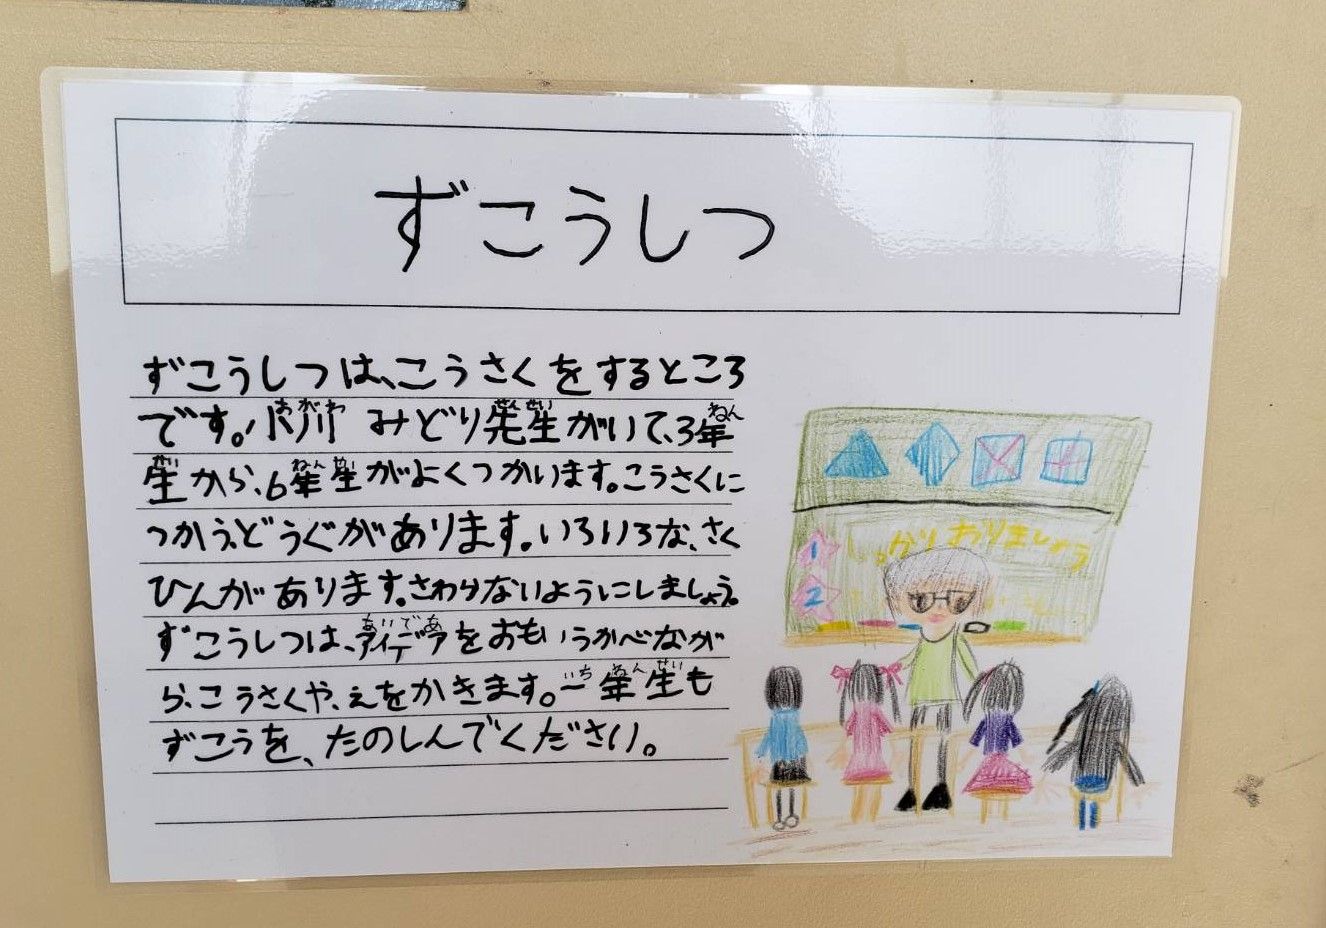 ずこうしつ
ずこうしつは、こうさくをするところ
です。小川 みどり先生がいて、3年
生から、6年生がよくつかいます。こうさくに
つかう、どうぐがあります。いろいろな、さく
ひんがあります。さわらないようにしましょう。
ずこうしつは、アイデアをおもいうかべなが
ら、こうさくや、えをかきます。一年生も
ずこうを、たのしんでください。
かりおりましょう
1
2